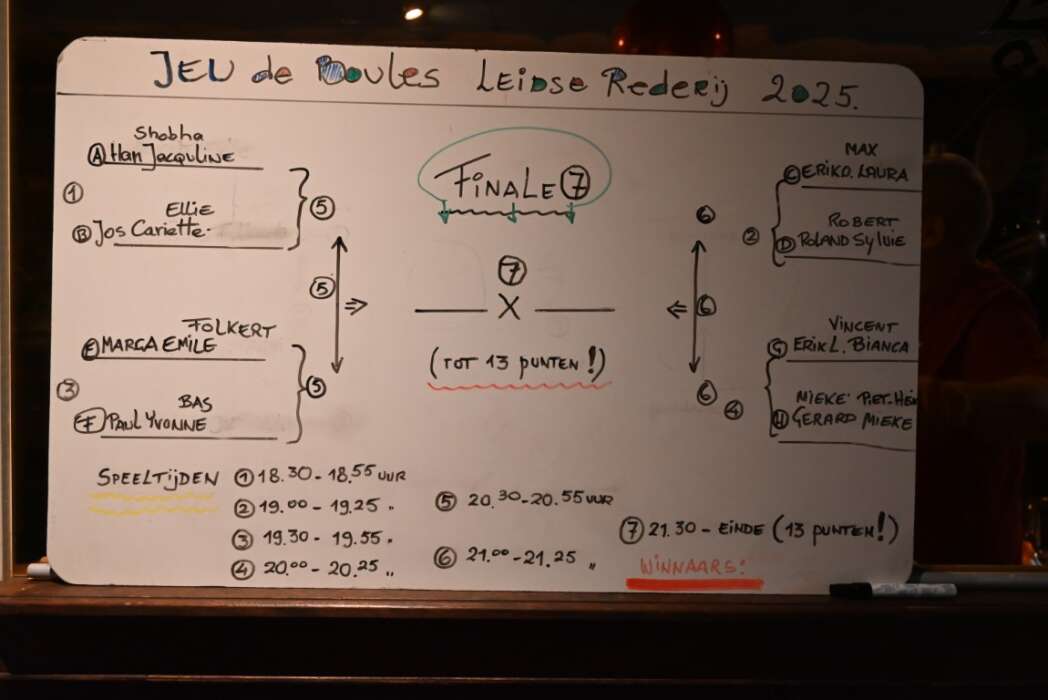 JEU de Boules Leidse Rederij 2025.
Shobha
A Han Jacquline
1
Ellie
B Jos Cariette
5
5
FOLKERT
E MARGA EMILE
3
BAS
F PAUL YVONNE
5
FINALE 7
7
X
(TOT 13 PUNTEN!)
MAX
C ERIKD. LAURA
2
ROBERT
D ROLAND SYLVIE
6
6
VINCENT
G ERIK L. BIANCA
4
MIEKE PIET-HEIN
H GERARD MIEKE
6
SPEELTIJDEN
1 18.30 - 18.55 UUR
2 19.00 - 19.25 "
3 19.30 - 19.55 "
4 20.00 - 20.25 "
5 20.30 - 20.55 UUR
6 21.00 - 21.25 "
7 21.30 - EINDE (13 PUNTEN!)
WINNAARS!